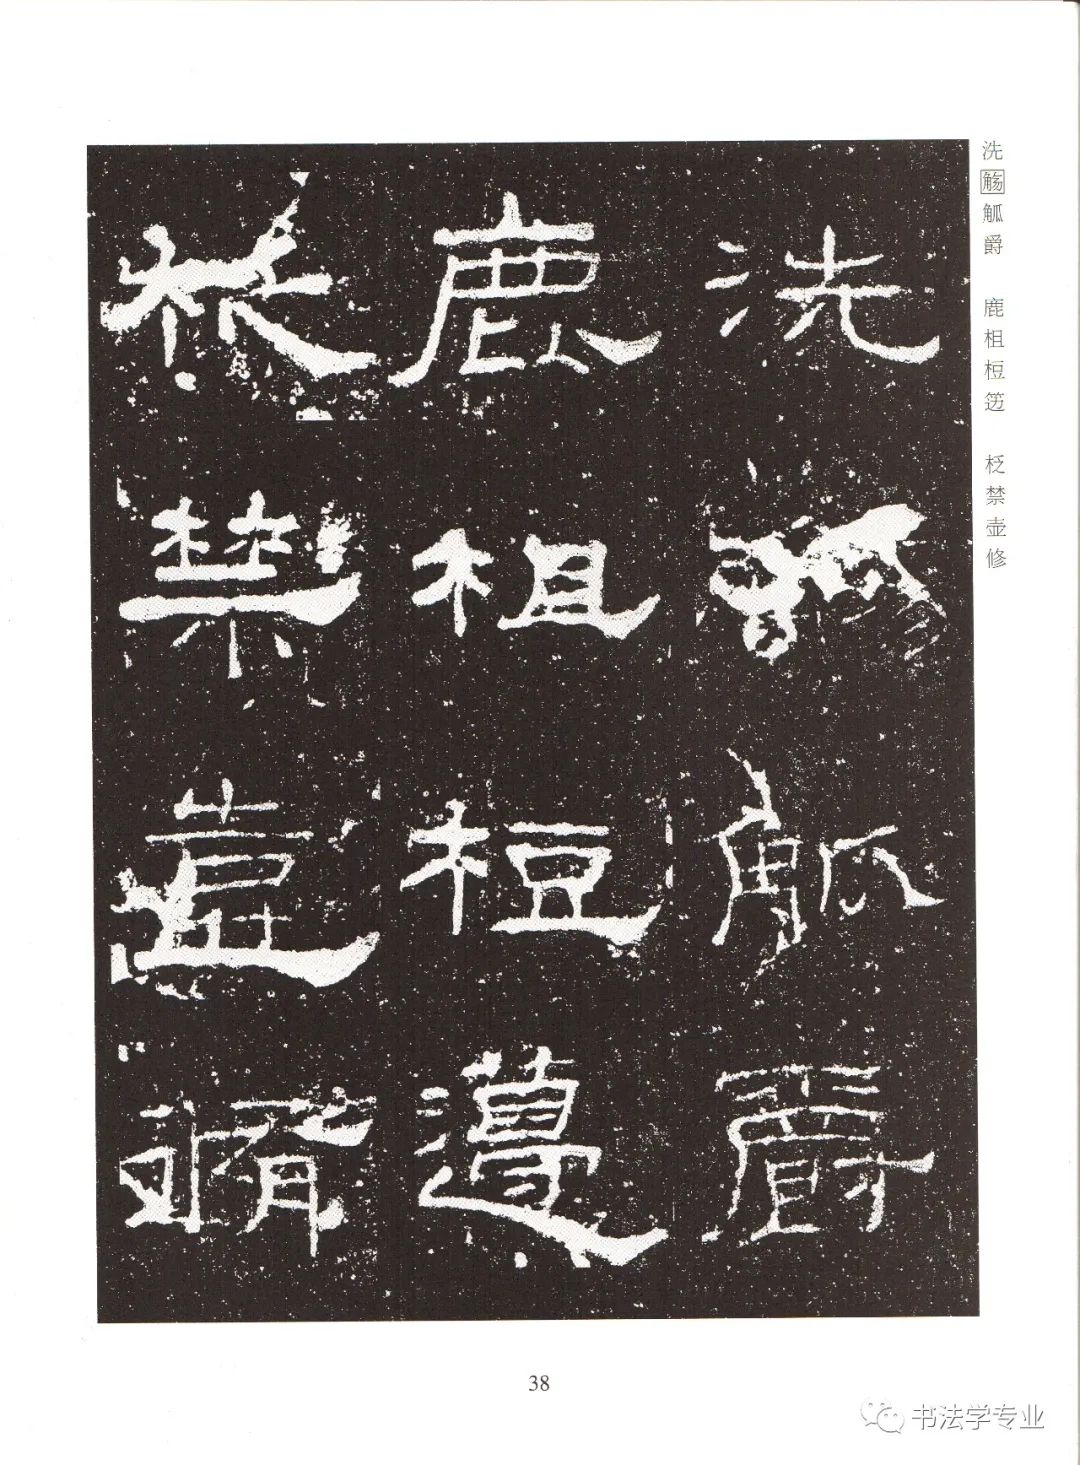 洗觞觚爵　鹿柤梪笾　柉禁壶修
洗觴觚爵
鹿柤梪籩
柉禁壺脩
38
书法学专业